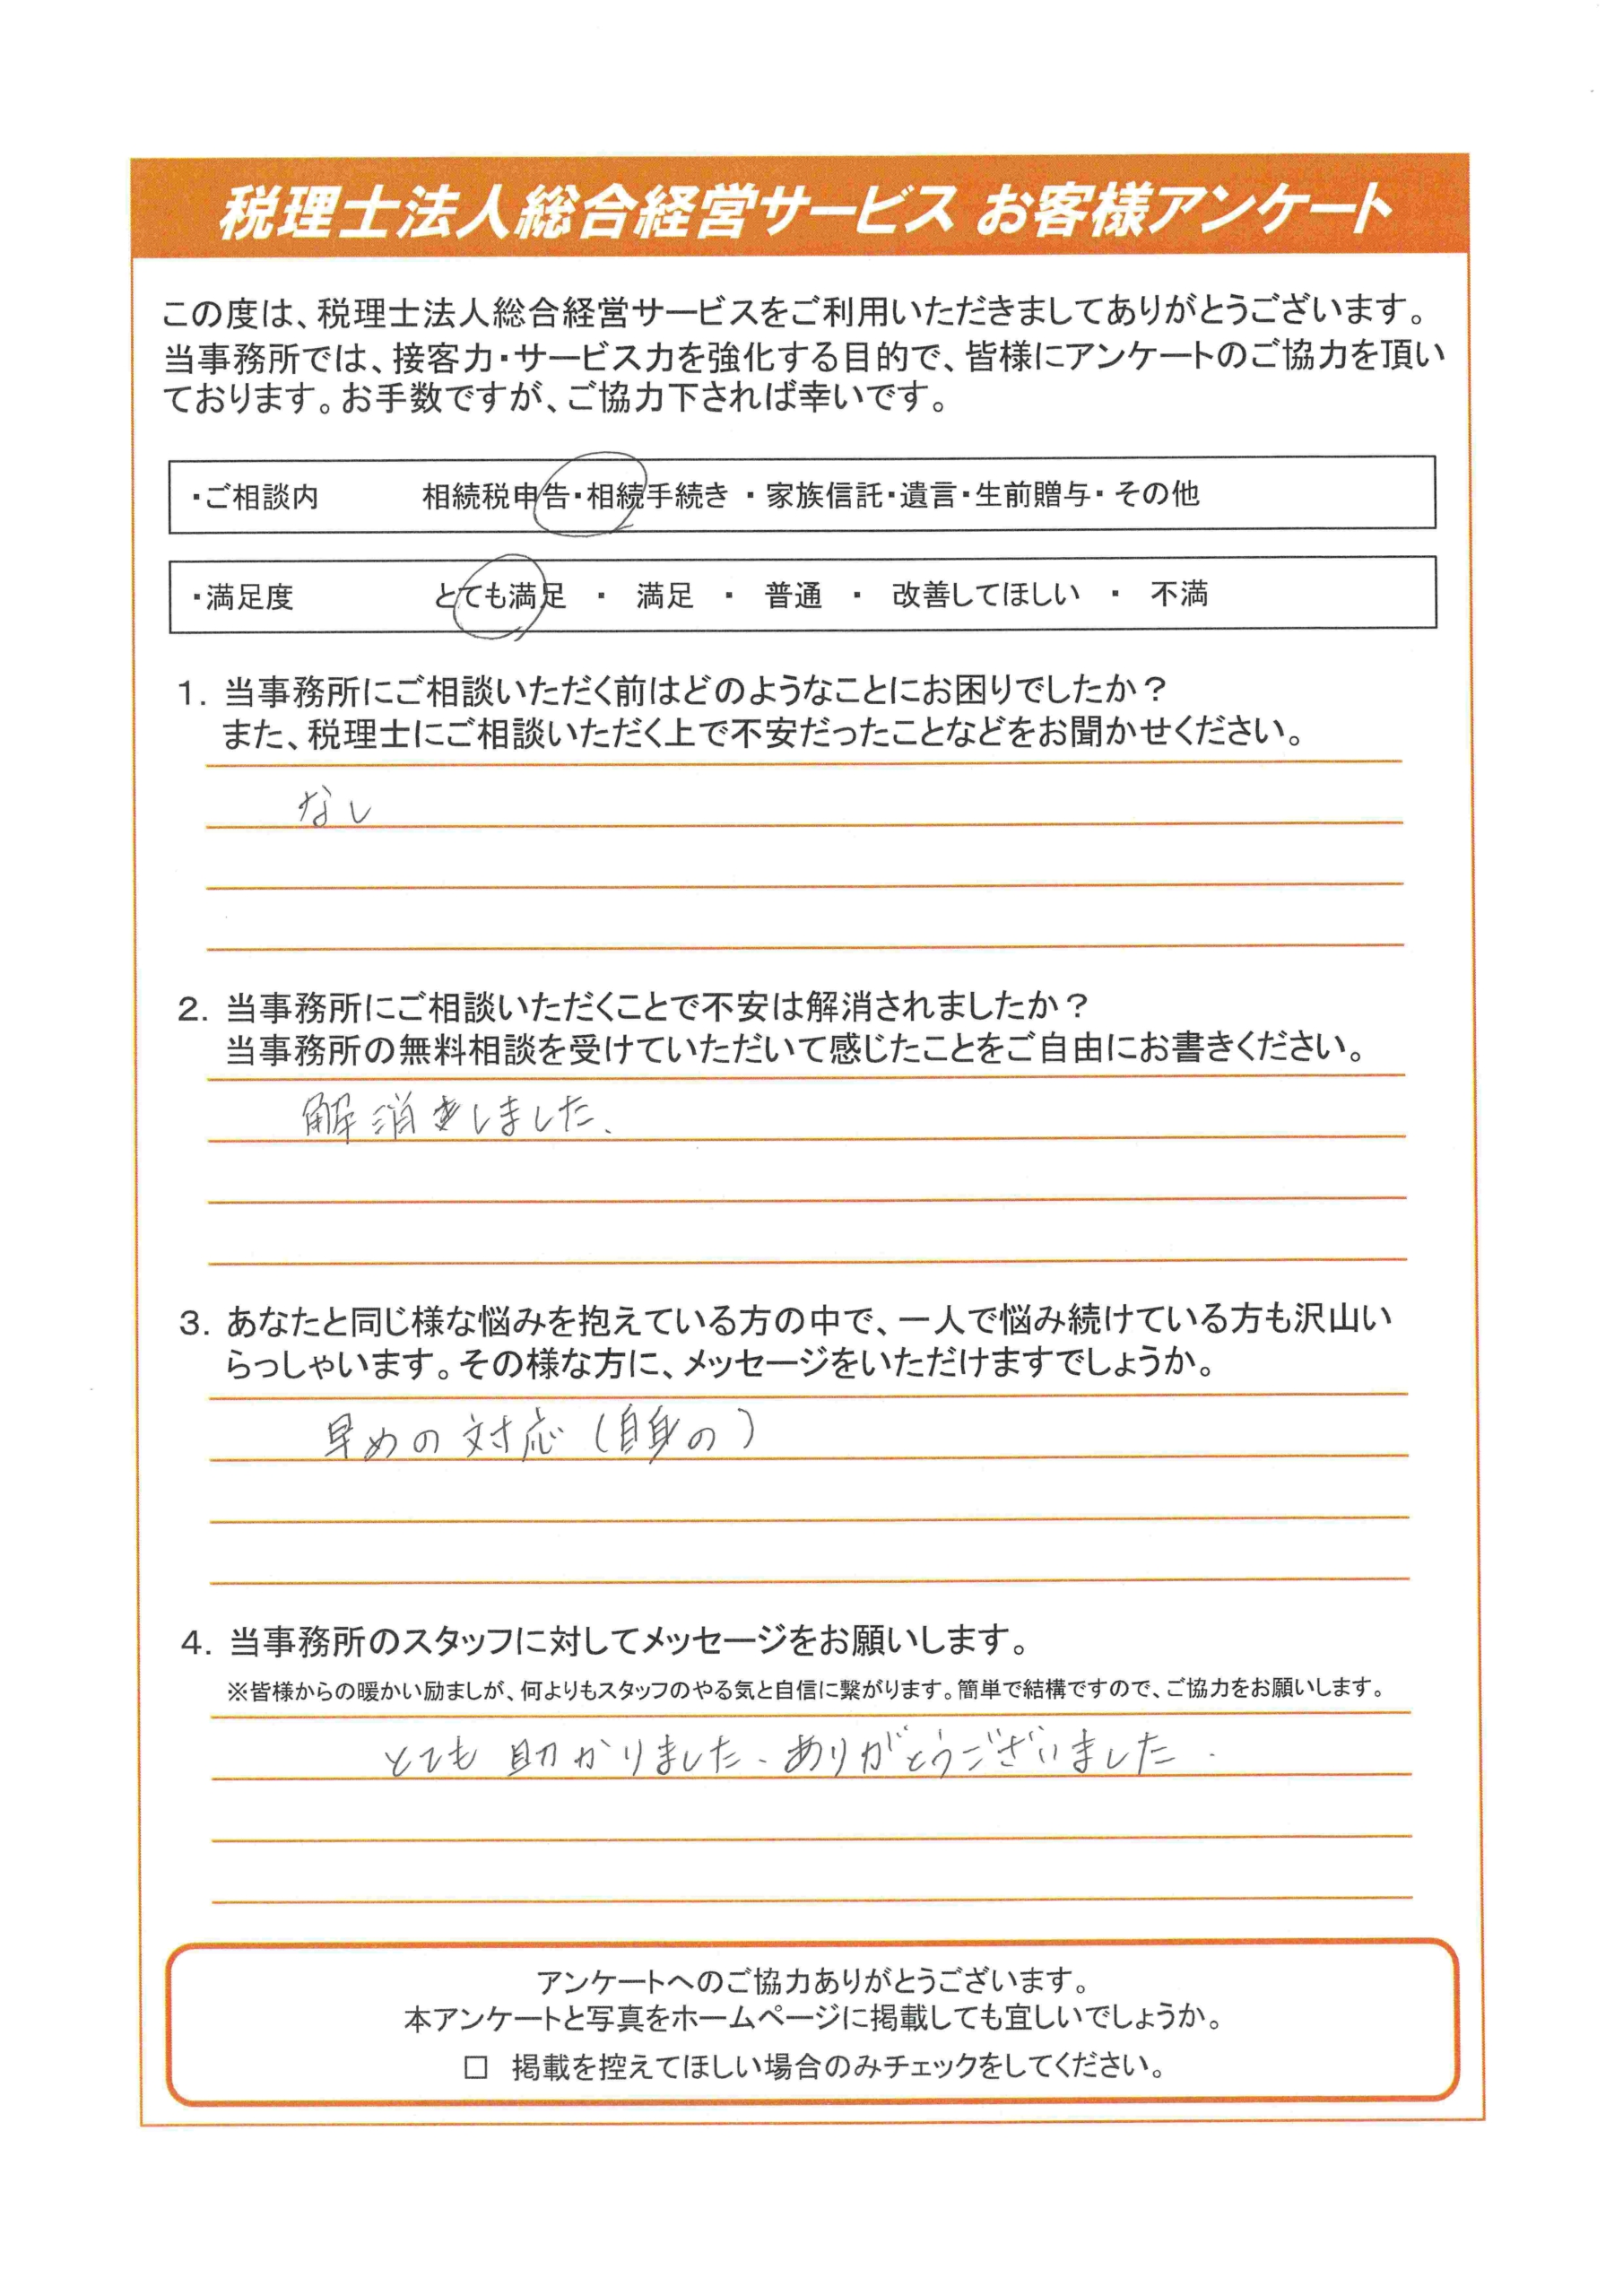 税理士法人総合経営サービス お客様アンケート
この度は、税理士法人総合経営サービスをご利用いただきましてありがとうございます。
当事務所では、接客力・サービス力を強化する目的で、皆様にアンケートのご協力を頂い
ております。お手数ですが、ご協力下されば幸いです。
・ご相談内 相続税申告・相続手続き ・家族信託・遺言・生前贈与・その他
・満足度 とても満足 ・ 満足 ・ 普通 ・ 改善してほしい ・ 不満
1. 当事務所にご相談いただく前はどのようなことにお困りでしたか？
また、税理士にご相談いただく上で不安だったことなどをお聞かせください。
なし
2. 当事務所にご相談いただくことで不安は解消されましたか？
当事務所の無料相談を受けていただいて感じたことをご自由にお書きください。
解消しました、
3. あなたと同じ様な悩みを抱えている方の中で、一人で悩み続けている方も沢山い
らっしゃいます。その様な方に、メッセージをいただけますでしょうか。
早めの対応(自身の)
4. 当事務所のスタッフに対してメッセージをお願いします。
※皆様からの暖かい励ましが、何よりもスタッフのやる気と自信に繋がります。簡単で結構ですので、ご協力をお願いします。
とても助かりました、ありがとうございました.
アンケートへのご協力ありがとうございます。
本アンケートと写真をホームページに掲載しても宜しいでしょうか。
□ 掲載を控えてほしい場合のみチェックをしてください。